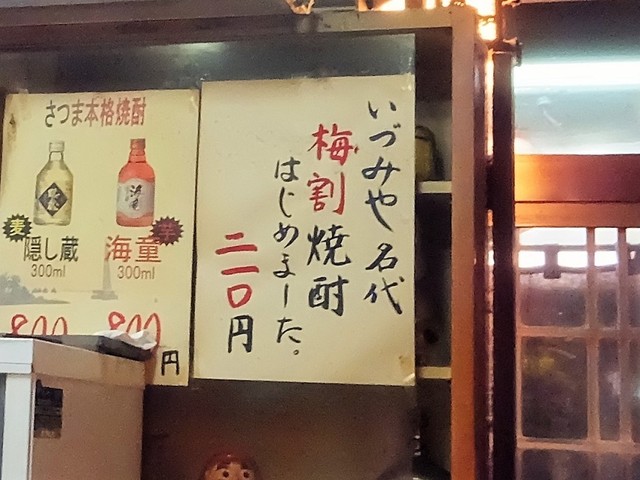 いづみや名代
梅割焼酎
はじめました。
二一〇円
さつま本格焼酎
麦
隠し蔵
300ml
芋
海童
300ml
800
800
円